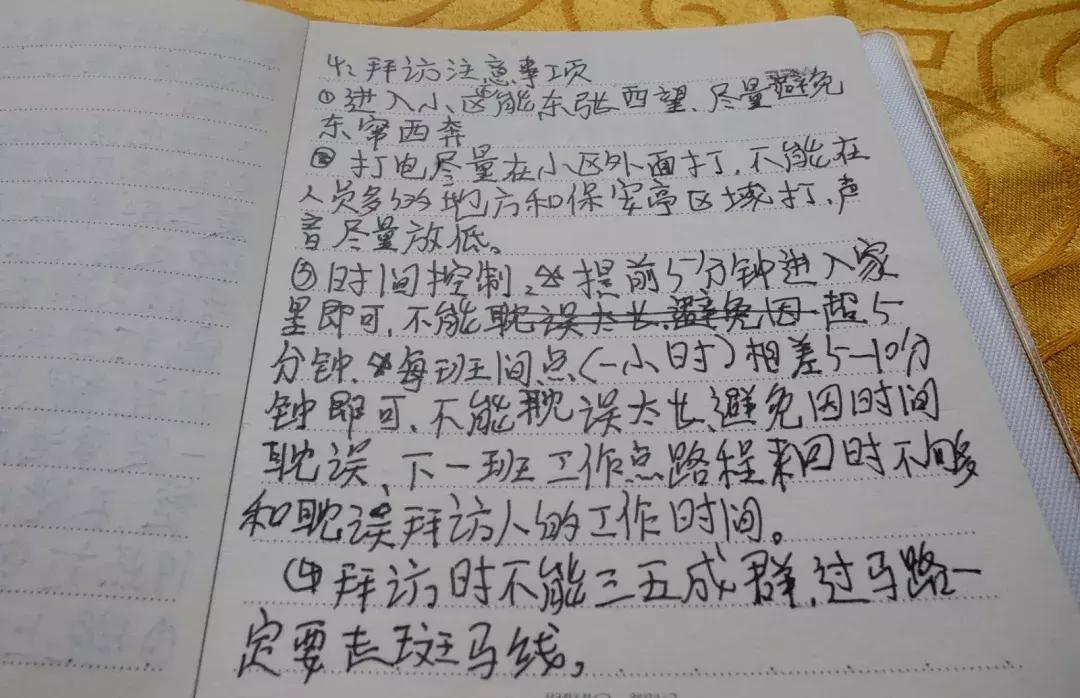 4、拜访注意事项
①进入小区不能东张西望、尽量避免
东窜西奔
② 打电尽量在小区外面打，不能在
人员多的地方和保安亭区域打，声
音尽量放低。
③时间控制、提前5分钟进入家
里即可，不能耽误太长、避免因超5
分钟、每班间点(一小时)相差5-10分
钟即可、不能耽误太长、避免因时间
耽误、下一班工作点路程来回时不够
和耽误拜访人的工作时间。
④拜访时不能三五成群，过马路一
定要走斑马线。